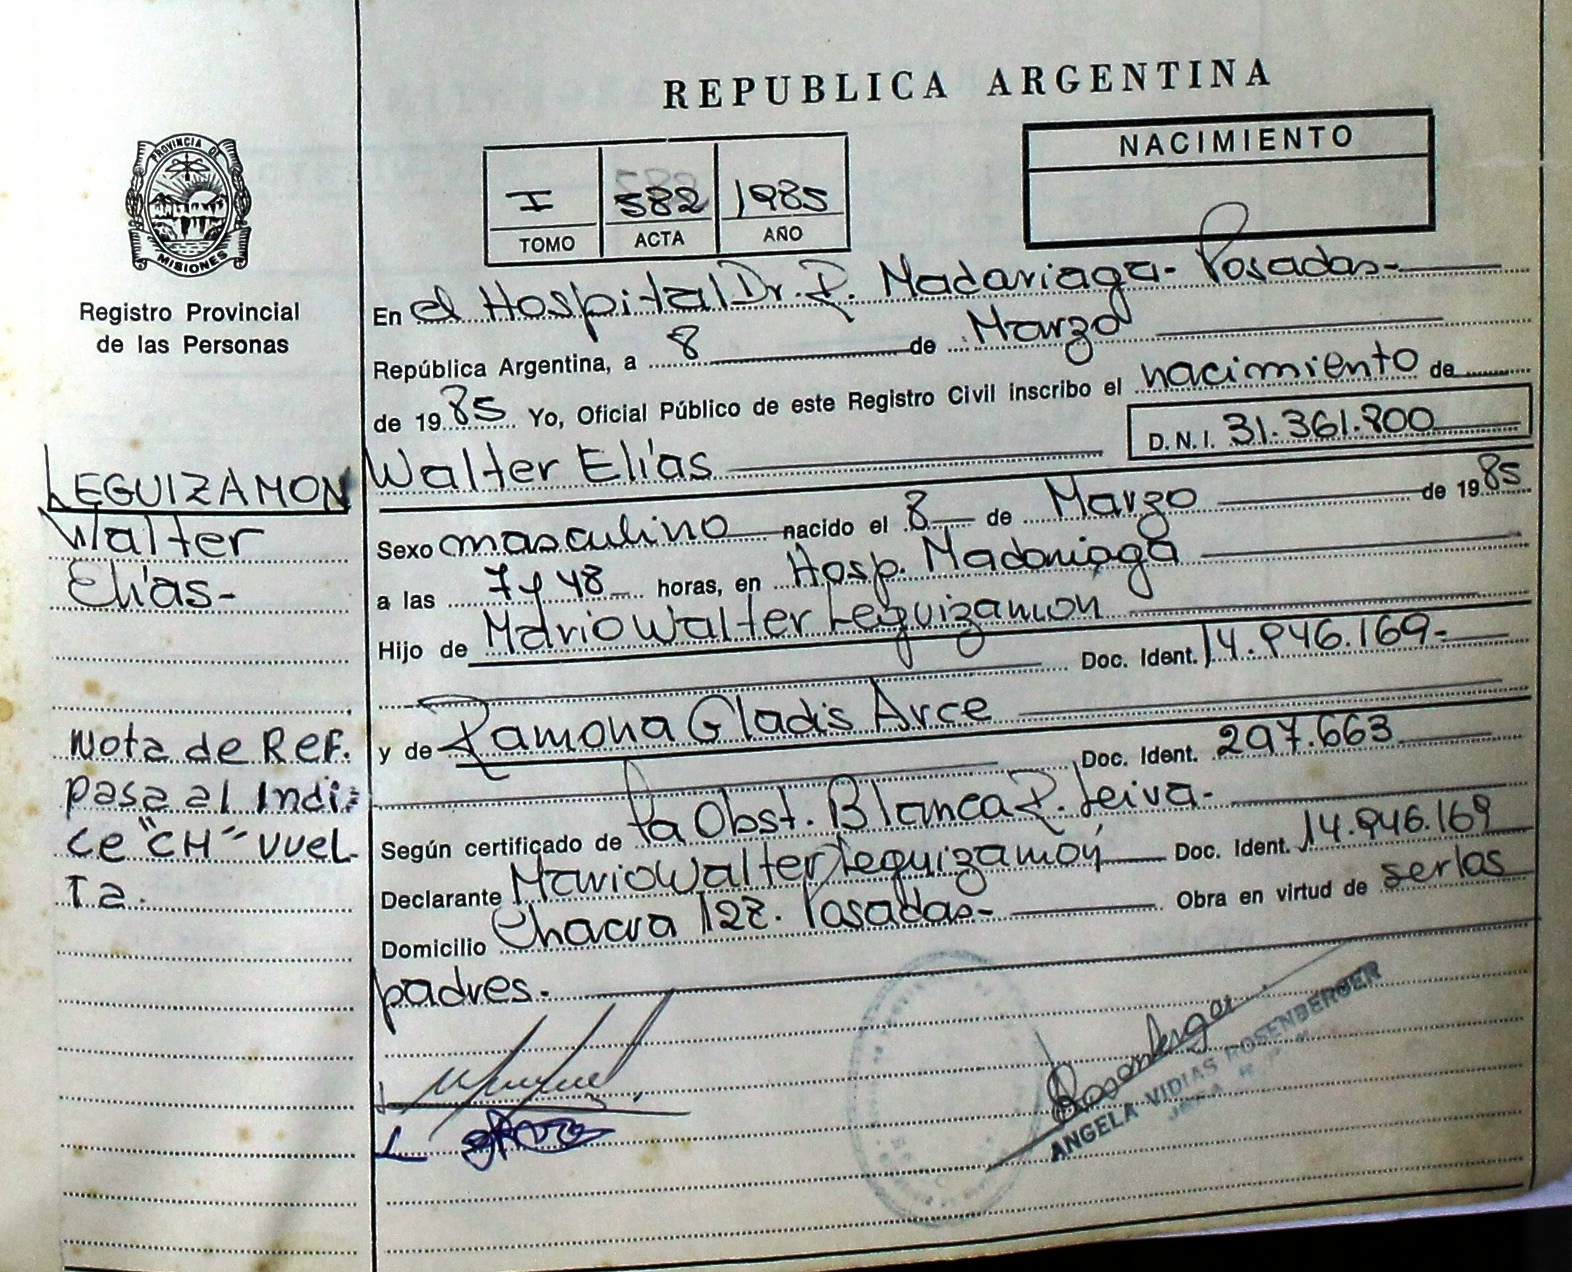 REPUBLICA ARGENTINA
PROVINCIA DE
MISIONES
Registro Provincial
de las Personas
I 582 1985
TOMO ACTA AÑO
NACIMIENTO
En el Hospital Dr. R. Madariaga - Posadas -
República Argentina, a 8 de Marzo
de 1985 Yo, Oficial Público de este Registro Civil inscribo el nacimiento de
D.N.I. 31.361.800
Walter Elías
LEGUIZAMON
Walter
Elías-
Sexo masculino nacido el 8 de Marzo de 1985
a las 7 y 48 horas, en Hosp. Madariaga
Hijo de Mario Walter Leguizamon
Doc. Ident. 14.946.169-
y de Ramona Gladis Arce
Doc. Ident. 297.663
Según certificado de la Obst. Blanca R. Leiva-
Declarante Mario Walter Leguizamón Doc. Ident. 14.946.169
Domicilio Chacra 122. Posadas- Obra en virtud de ser los
padres.
Nota de Ref.
pasa al Indi
ce "CH" vuel
Ta.
Rosenberger
ANGELA VIDIAS ROSENBERGER